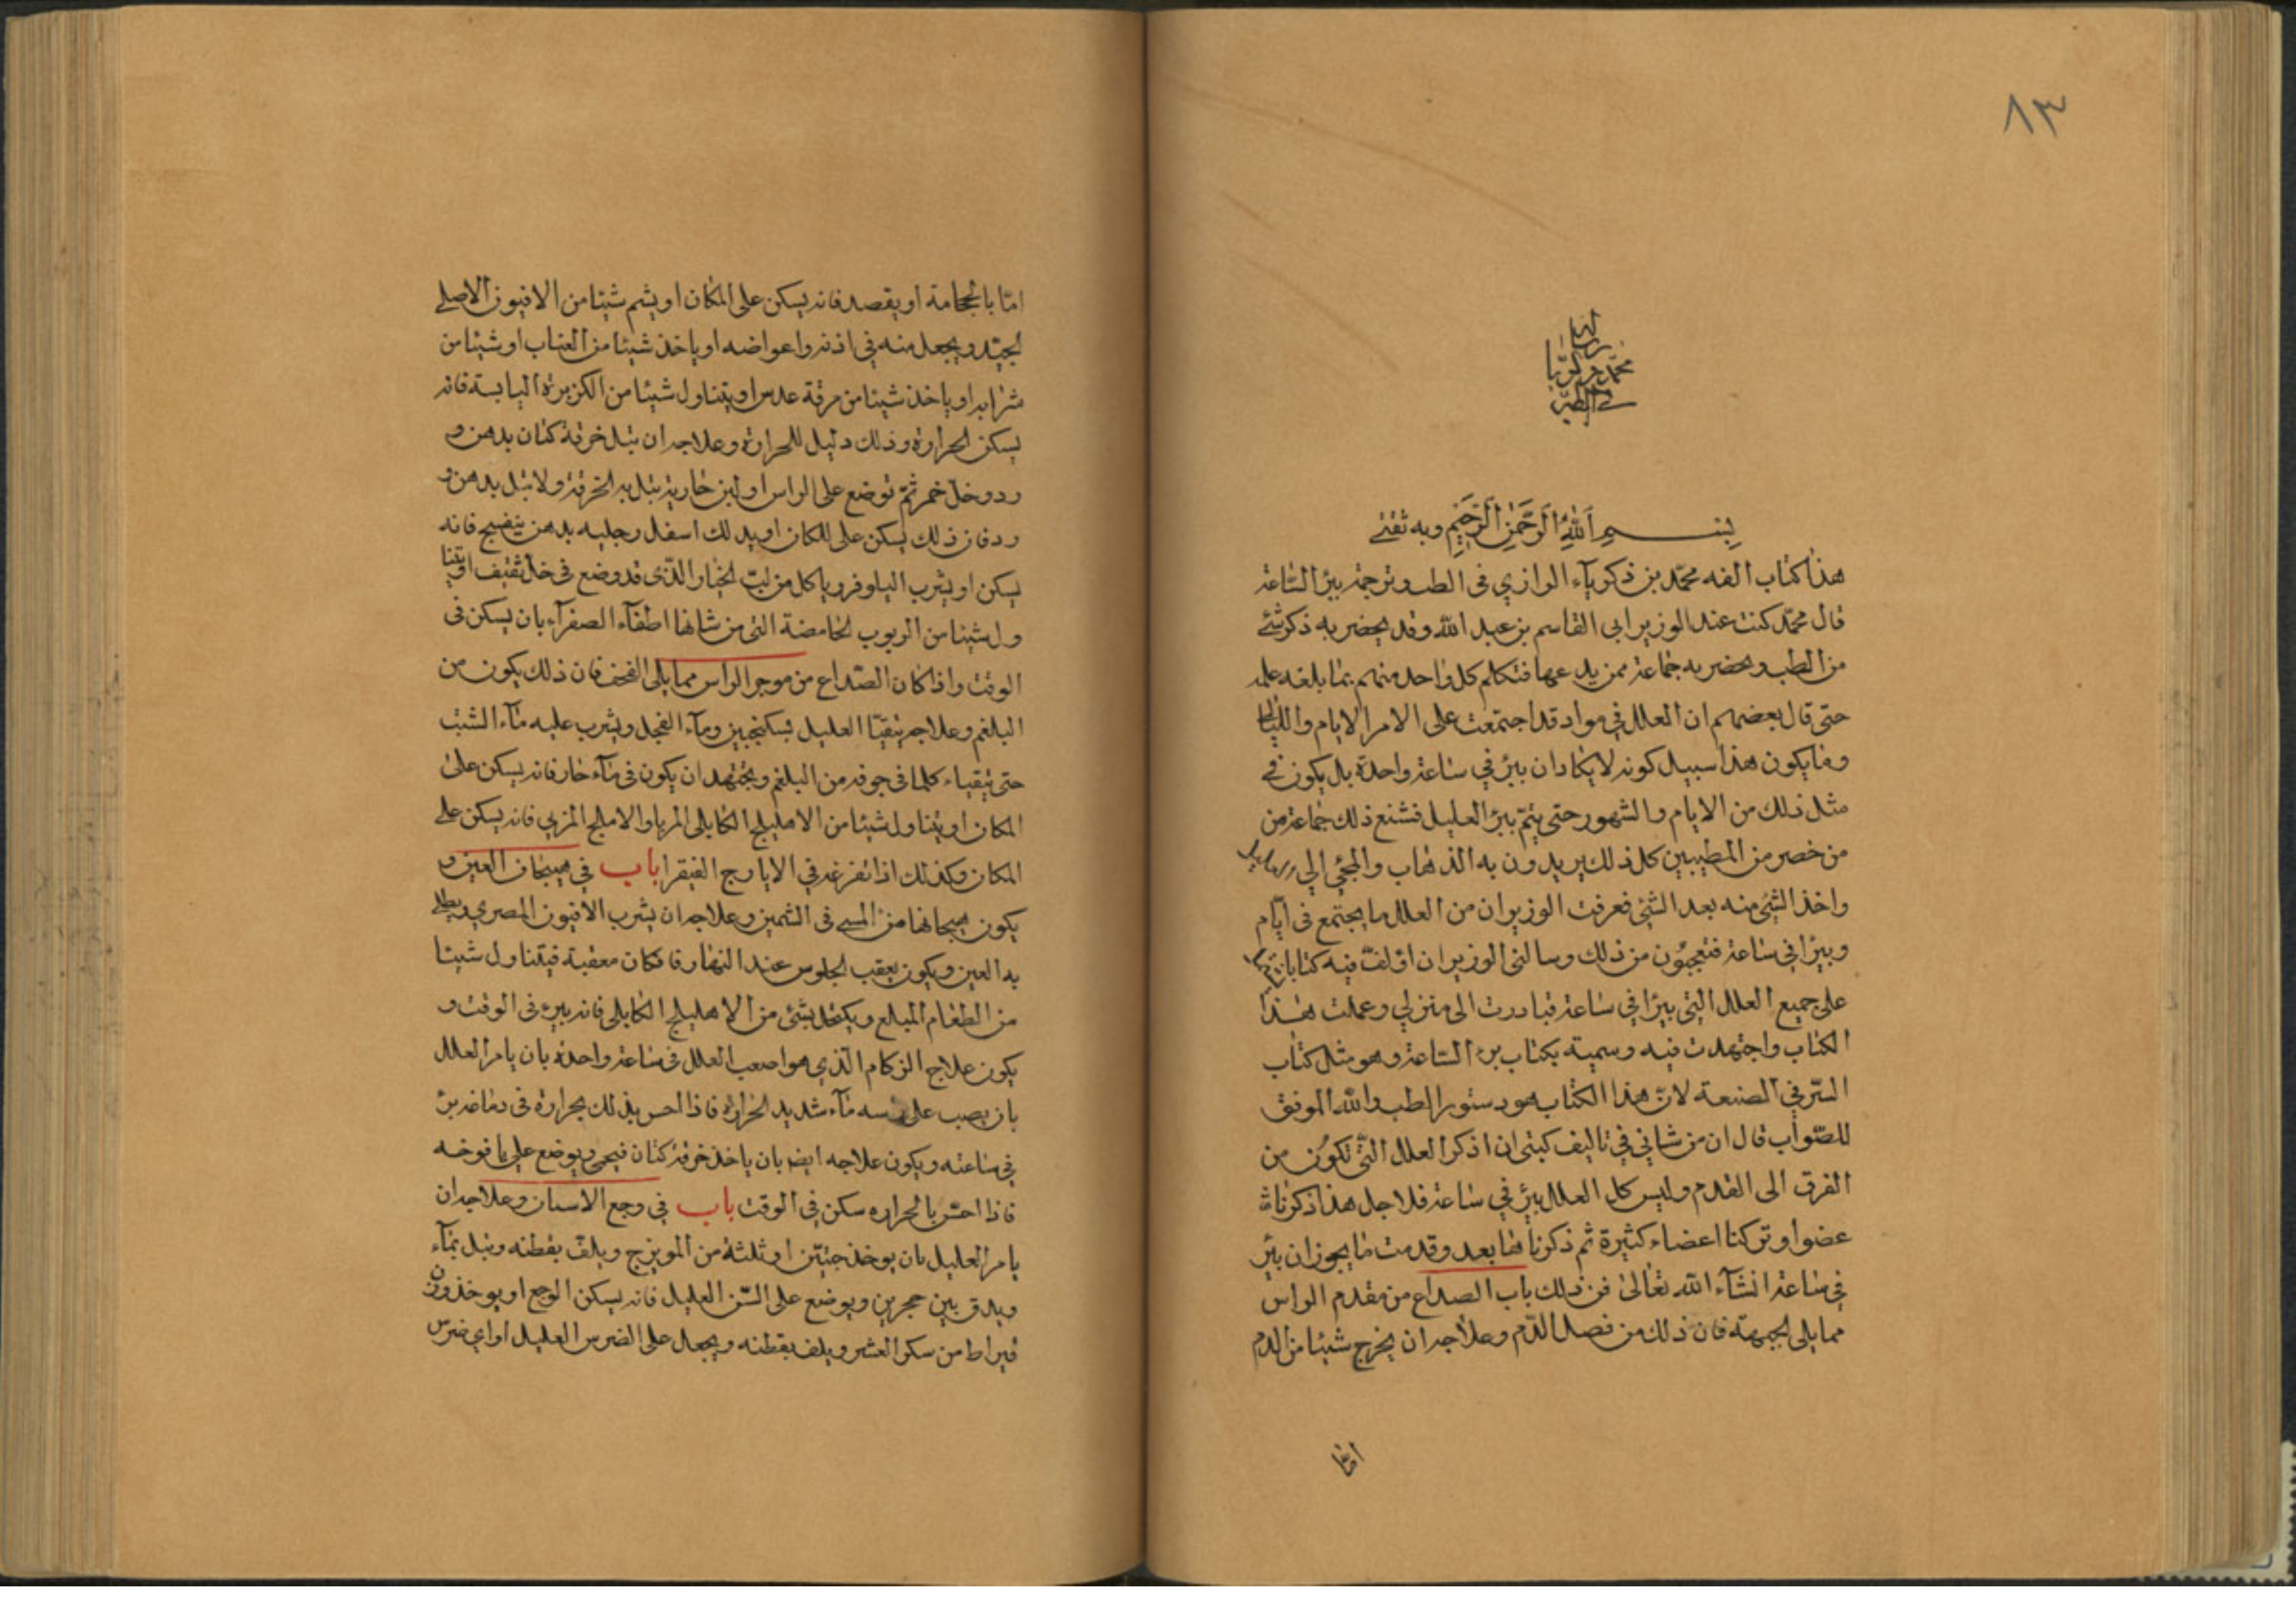 ٨٣
محمد زكريا
في الطب
بسم الله الرحمن الرحيم وبه ثقتي
هذا كتاب الفه محمد بن ذكرياء الرازي في الطب وترجمته ببرء الساعة
قال محمد كنت عند الوزير ابي القاسم بن عبد الله وقد يحضر به ذكر شئ
من الطب ويحضر به جماعة ممن يدعيها فتكلم كل واحد منهم بما بلغه علمه
حتى قال بعضهم ان العلل في مواد قد اجتمعت على الامر الايام والليالي
وما يكون هذا سبيل كونه لا يكاد ان يبرئ في ساعة واحدة بل يكون في
مثل ذلك من الايام والشهور حتى يتم برؤ العليل فشنع ذلك جماعة من
من حضر من المطببين كل ذلك يريدون به الذهاب والمجئي الى
واخذ الشئ منه بعد الشئ فعرفت الوزير ان من العلل ما يجتمع في ايام
ويبرا في ساعة فتعجبون من ذلك وسالني الوزير ان اؤلف فيه كتابا
على جميع العلل التي يبرا في ساعة فبادرت الى منزلي وعملت هذا
الكتاب واجتهدت فيه وسميته بكتاب برء الساعة وهو مثل كتاب
السر في الصنعة لان هذا الكتاب هو دستور الطب والله الموفق
للصواب قال ان من شاني في تاليف كتبي ان اذكر العلل التي تكون من
الفرق الى القدم وليس كل العلل يبرئ في ساعة فلا جل هذا ذكرنا
عضوا وتركنا اعضاء كثيرة ثم ذكرنا فيما بعد وقدمت ما يجوز ان يبرئ
في ساعة انشاء الله تعالى فمن ذلك باب الصداع من مقدم الراس
مما يلي الجبهة فان ذلك من فصل الدم وعلاجه ان يخرج شيئا من الدم
اما
اما بالحجامة او يقصد فانه يسكن على المكان او يشم شيئا من الافيون الاصلي
الجيد ويجعل منه في اذنه واعواضه او ياخذ شيئا من العناب او شيئا من
شرابه او ياخذ شيئا من مرقة عدس او يتناول شيئا من الكزبرة اليابسة فانه
يسكن الحرارة وذلك دليل للحرارة وعلاجه ان تبل خرقة كتان بدهن و
رد وخل خمر ثم توضع على الراس او لبن جارية تبل به الخرقة ولا تبل بدهن و
رد فان ذلك يسكن على المكان او يدلك اسفل رجليه بدهن بنفسج فانه
يسكن او يشرب النيلوفر وياكل من لب الخيار الذى قد وضع في خل ثقيف او يتنا
ول شيئا من الربوب الحامضة التي من شانها اطفاء الصفراء بان يسكن في
الوقت واذا كان الصداع من موخر الراس مما يلي القحف فان ذلك يكون من
البلغم وعلاجه يتقيا العليل بسكنجبين وماء الفجل ويشرب عليه ماء الشبت
حتى يتقياء كلما في جوفه من البلغم ويجتهد ان يكون في ماء حار فانه يسكن على
المكان او يتناول شيئا من الاهليلج الكابلي المربا والاملج المربي فانه يسكن على
المكان وكذلك اذا تغرغر في الايارج الفيقرا باب في هيجان العين و
يكون هيجانها من المسي في الشمس وعلاجه ان يشرب الافيون المصري ويطلى
به العين ويكون بعقب الجلوس عند النهار فان كان معقبة فيتناول شيئا
من الطعام المبلع ويكتحل بشئ من الاهليلج الكابلي فانه يبرء في الوقت و
يكون علاج الزكام الذي هو اصعب العلل في ساعة واحدة بان يامر العلل
بان يصب على راسه ماء شديد الحرارة فاذا احس بذلك بحرارة في دماغه برئ
في ساعته ويكون علاجه ايضا بان ياخذ خرقة كتان فيحمي ويوضع على يافوخه
فاذا احس بالحرارة سكن في الوقت باب في وجع الاسنان وعلاجه ان
يامر العليل بان يوخذ حبتين او ثلثة من المويزج ويلف بقطنه وتبل بماء
ويدق بين حجرين ويوضع على السن العليل فانه يسكن الوجع او يوخذ وزن
قيراط من سكر العشر ويلف بقطنه ويجعل على الضرس العليل او اي ضرس